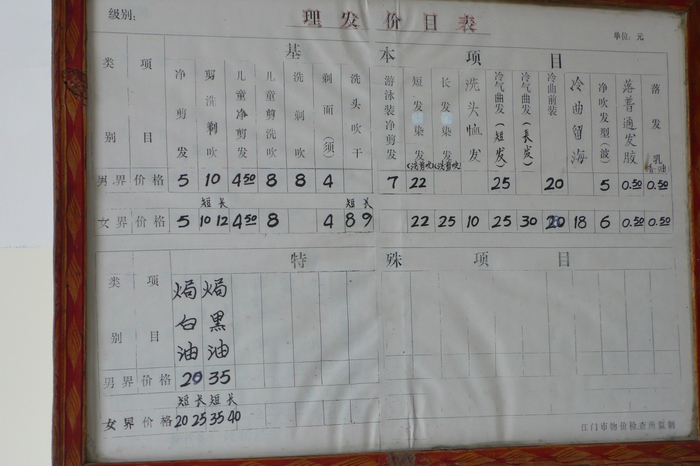 级别:
理发价目表
单位: 元
基本项目
类别 项目
净剪发
剪洗剃吹
儿童净发
儿童剪洗
洗剃吹
剃面(须)
洗头吹干
游泳装净剪发
短发染发(洗剪吹)
长发染发(洗剪吹)
洗头恤发
冷气曲发(短发)
冷气曲发(长发)
冷曲前装
冷曲留海
净吹发型(波)
落普通发胶
落发乳
男界价格 5 10 4.50 8 8 4 7 22 25 20 5 0.50 0.50
短 长 短 长
女界价格 5 10 12 4.50 8 4 8 9 22 25 10 25 30 20 18 6 0.50 0.50
特殊项目
类别 项目
焗白油
焗黑油
男界价格 20 35
短 长 短 长
女界价格 20 25 35 40
江门市物价检查所监制